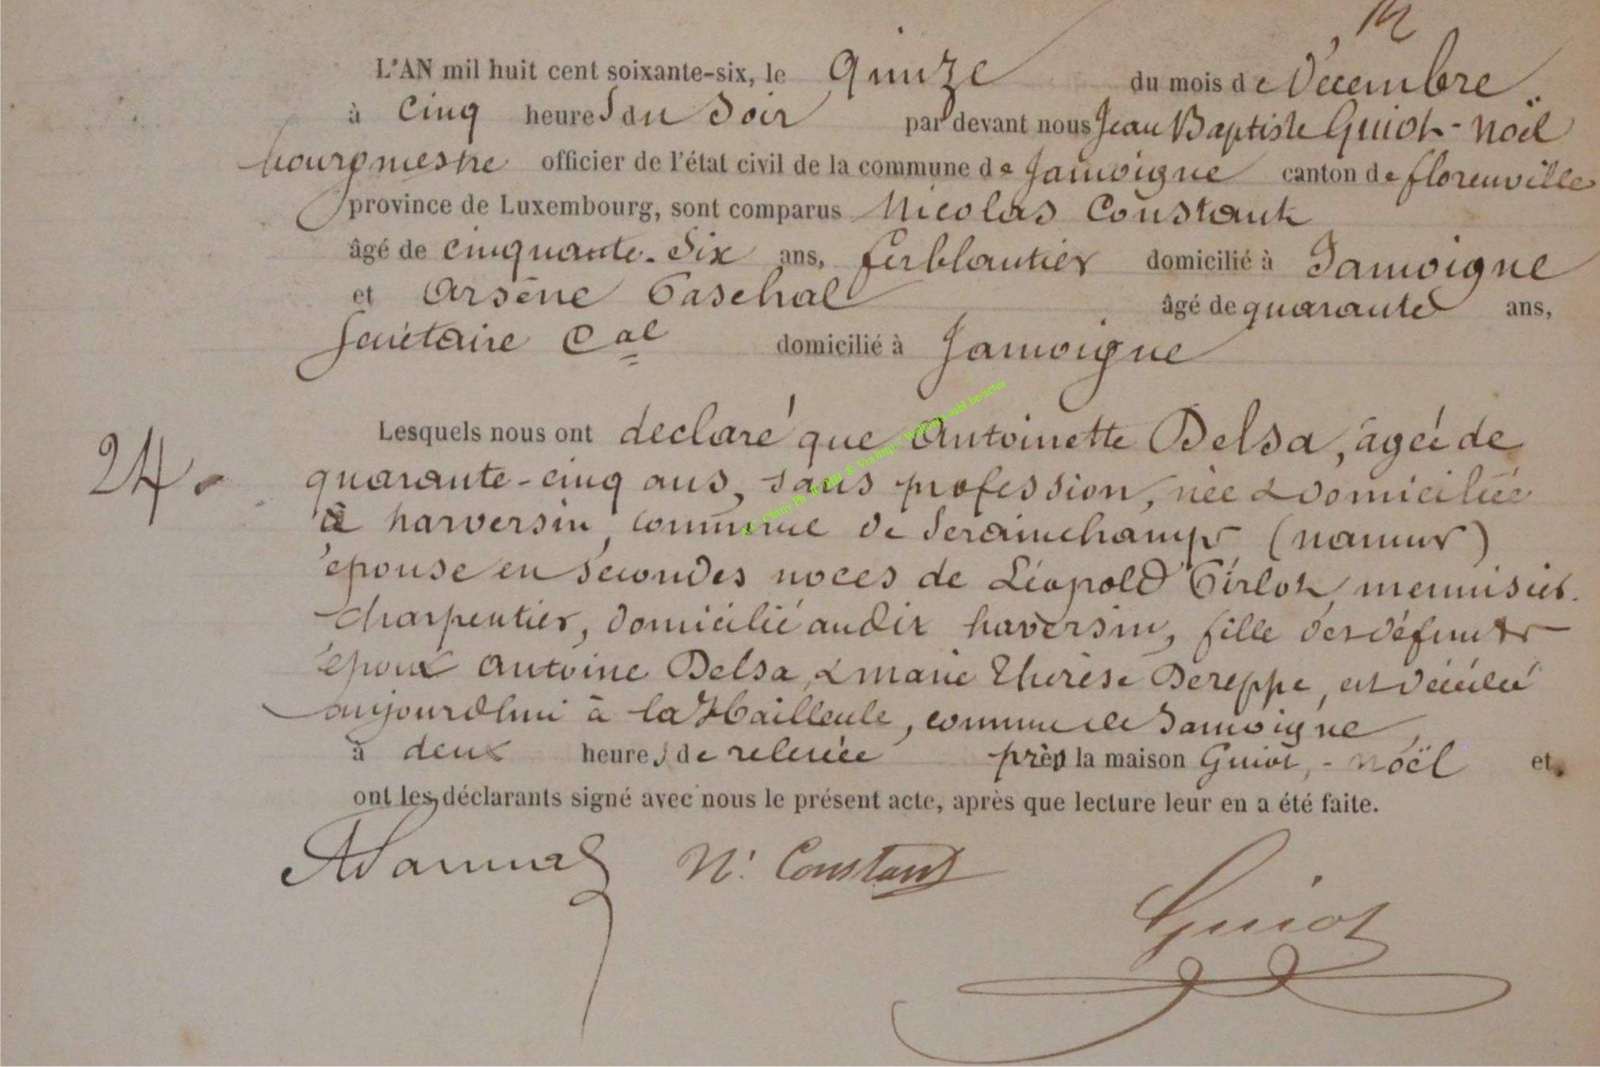 L'AN mil huit cent soixante-six, le quinze du mois de Décembre
à cinq heures du soir par devant nous Jean Baptiste Guiot-Noël
bourgmestre officier de l'état civil de la commune de Jamoigne canton de florenville
province de Luxembourg, sont comparus Nicolas Constant
âgé de cinquante-six ans, ferblantier domicilié à Jamoigne
et Arsène Paschal âgé de quarante ans,
Secrétaire Cal domicilié à Jamoigne
24.
Lesquels nous ont declaré que Antoinette Delsa, âgée de
quarante-cinq ans, sans profession, née & domiciliée
à harversin, commune de Serainchamps (namur)
épouse en secondes noces de Léopold Pirlot, menuisier
charpentier, domicilié audit haversin, fille des défunts
époux Antoine Delsa, & marie Thérèse Dereppe, est décédée
aujourdhui à la Hailleule, commune de Jamoigne,
à deux heures de relevée près la maison Guiot,-Noël et
ont les déclarants signé avec nous le présent acte, après que lecture leur en a été faite.
N. Constant
Guiot